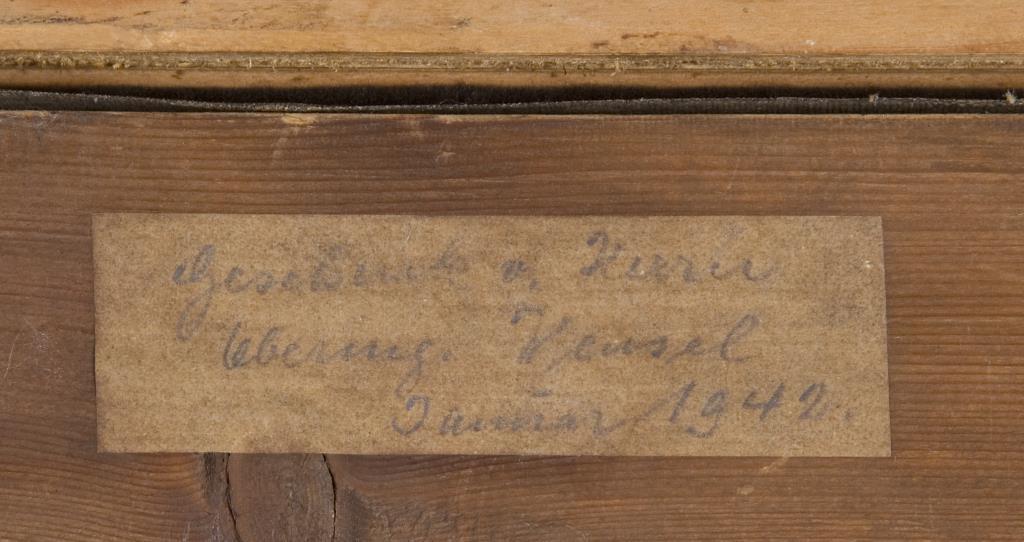 Geschenk v. Herrn
Obering. Hensel
Januar 1942.